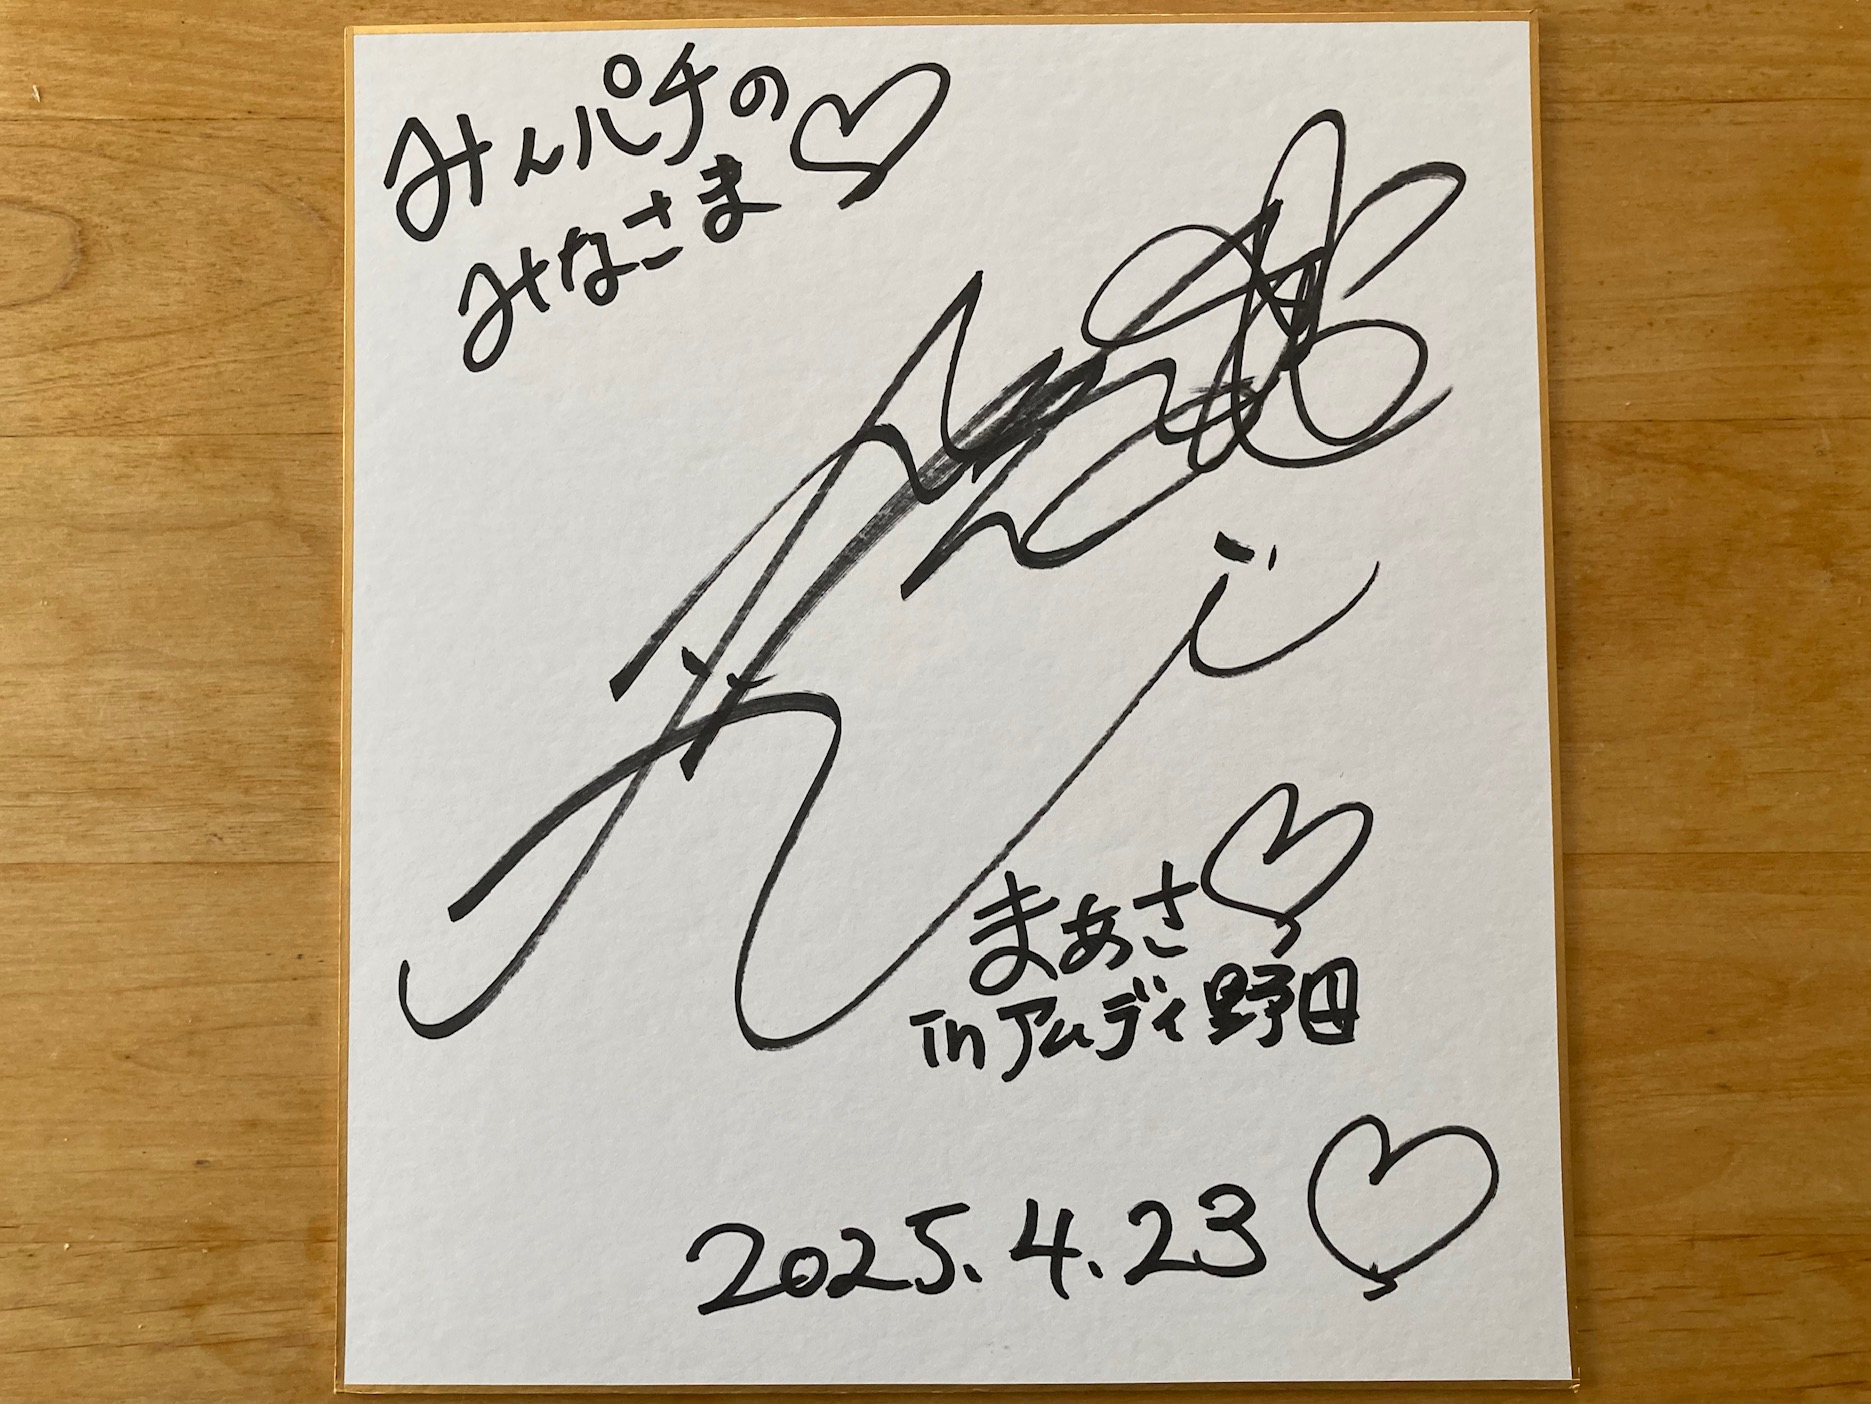 みんパチの♡
みなさま
まあさ♡
inアムディ野田
2025.4.23♡